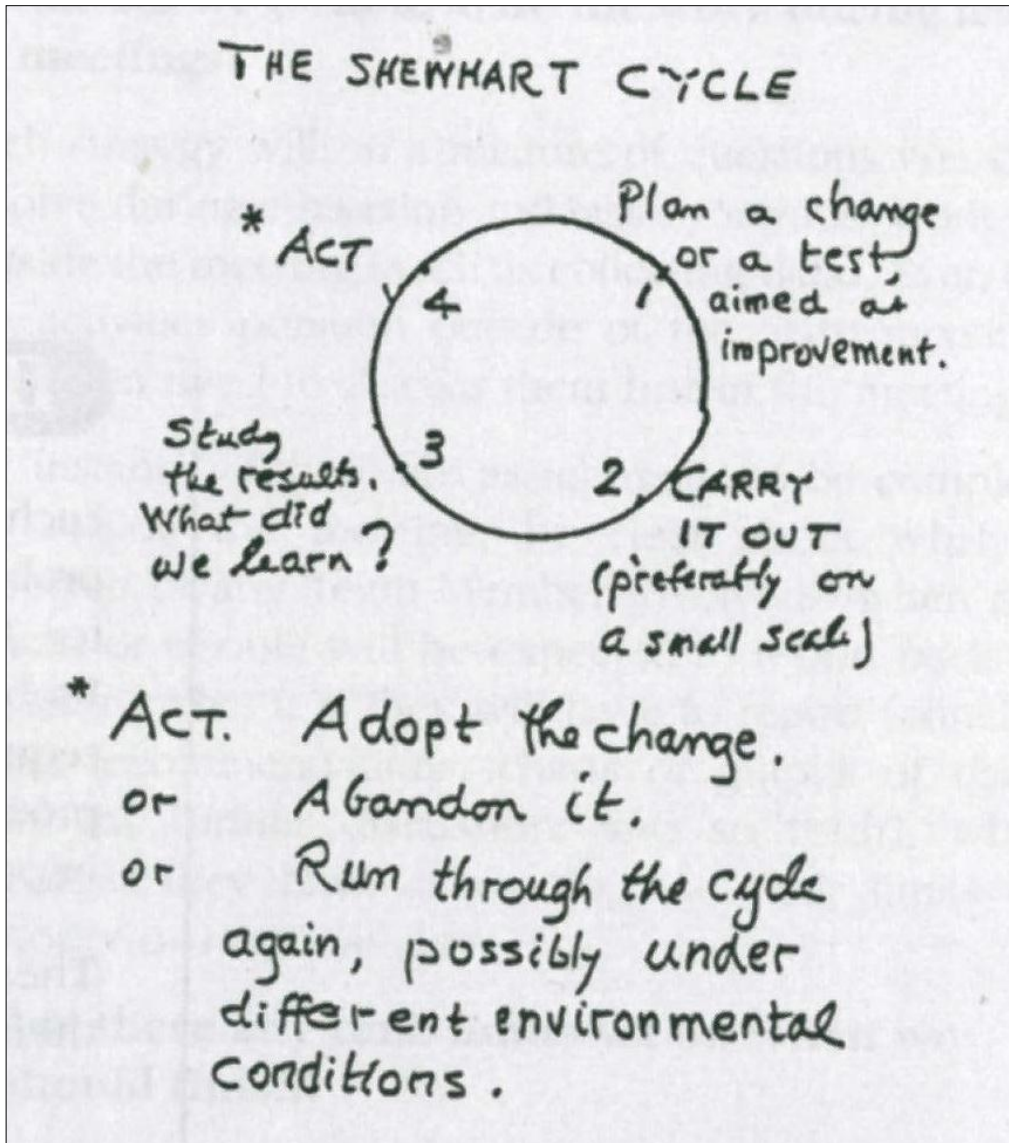 THE SHEWHART CYCLE
* ACT
4
Plan a change
or a test
aimed at
improvement.
1
2.
CARRY
IT OUT
(preferably on
a small scale)
3
Study
the results.
What did
we learn?
* ACT. Adopt the change.
or Abandon it.
or Run through the cycle
again, possibly under
different environmental
conditions.